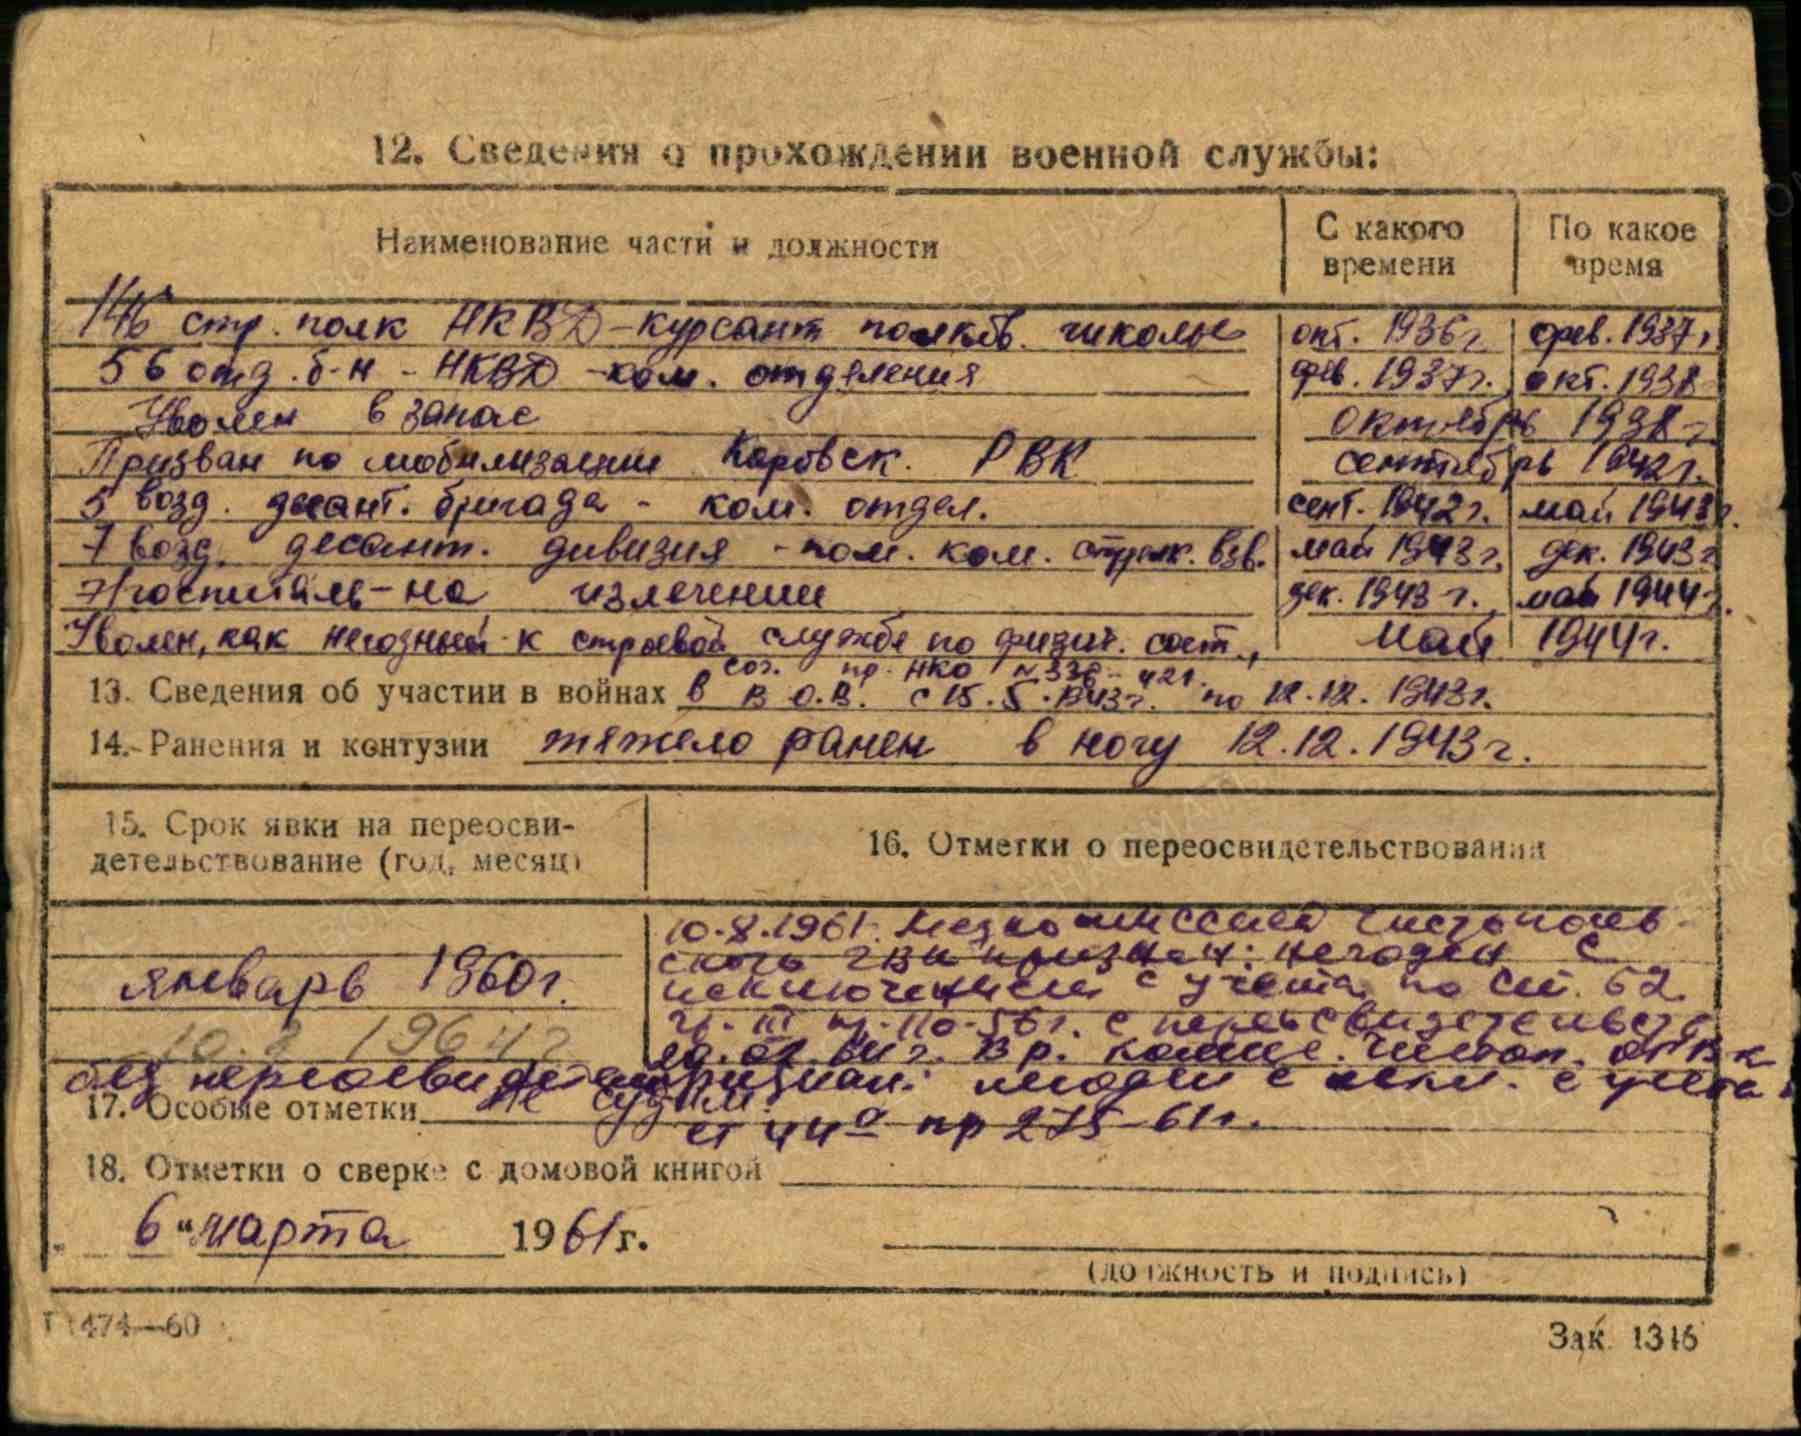 12. Сведения о прохождении военной службы:
Наименование части и должности
С какого времени
По какое время
146 стр. полк НКВД - курсант полков. школы окт. 1936 г. фев. 1937 г.
56 отд. б-н - НКВД - ком. отделения фев. 1937 г. окт. 1938
Уволен в запас октябрь 1938 г.
Призван по мобилизации РВК сентябрь 1942 г.
5 возд. десант. бригада - ком. отдел. сент. 1942 г. май 1943 г.
7 возд. десант. дивизия - пом. ком. стрелк. взв. май 1943 г. дек. 1943 г.
Госпиталь - на излечении дек. 1943 г. май 1944 г.
Уволен, как негодный к строевой службе по физич. сост., май 1944 г.
сог. пр. НКО № 336 - 42 г.
13. Сведения об участии в войнах в В.О.В. с 15.5.1943 г. по 12.12.1943 г.
14. Ранения и контузии тяжело ранен в ногу 12.12.1943 г.
15. Срок явки на переосви-
детельствование (год, месяц)
16. Отметки о переосвидетельствовании
январь 1960 г.
1964 г
10.8.1961. Медкомиссией Чистополь-
ского ГВК признан: негоден с
исключением с учета по ст. 62
гр. III пр. 110-56 г. с переосвидетельств
Вр. комисс. Чистоп. ОГВК
без переосвидетел признан: негоден с искл. с учета
17. Особые отметки не судим.
ст 44а пр 275-61 г.
18. Отметки о сверке с домовой книгой
6 "марта 1961 г.
(должность и подпись)
Г 474—60
Зак. 1316